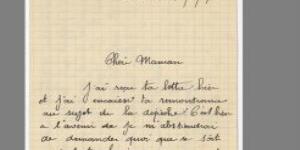 Chère Maman
J'ai reçu ta lettre hier
et j'ai encaissé ta remontrance
au sujet de la dépêche. C'est bien
à l'avenir je m'abstiendrai
de demander quoi que ce soit